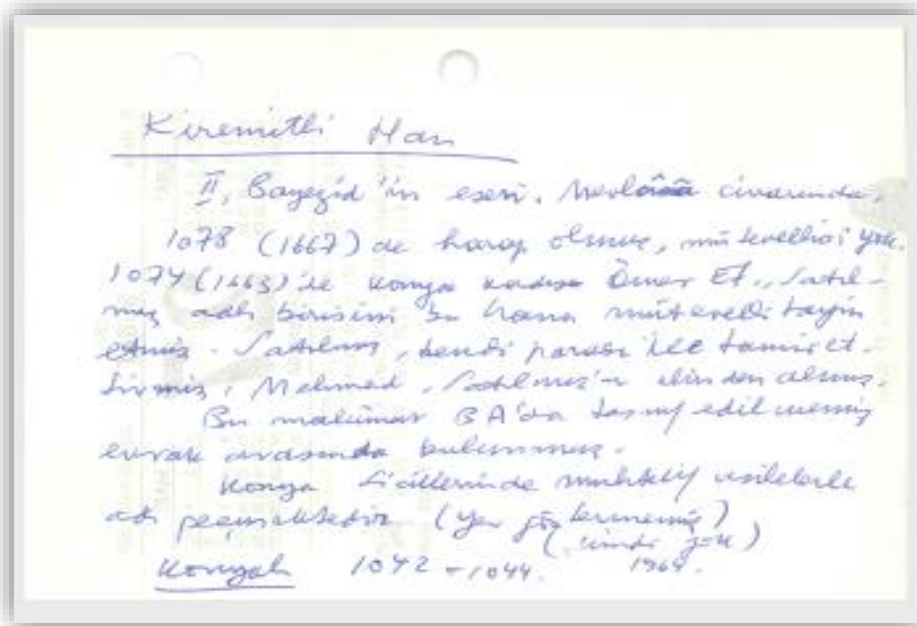 Kiremitli Han
II, Bayezid'in eseri. Mevlânâ civarında,
1078 (1667) de harap olmuş, mütevellisi yok.
1074 (1663)'de Konya kadısı Ömer Ef., Satıl-
mış adlı birisini bu hana mütevelli tayin
etmiş. Satılmış, kendi parası ile tamir et-
tirmiş, Mehmed, Satılmış'ın elinden almış.
Bu malûmat BA'da tasnif edilmemiş
evrak arasında bulunmuş.
Konya Sicillerinde muhtelif vesilelerle
adı geçmektedir (yer göstermemiş)
(şimdi yok)
Konyalı 1042 - 1044. 1964.